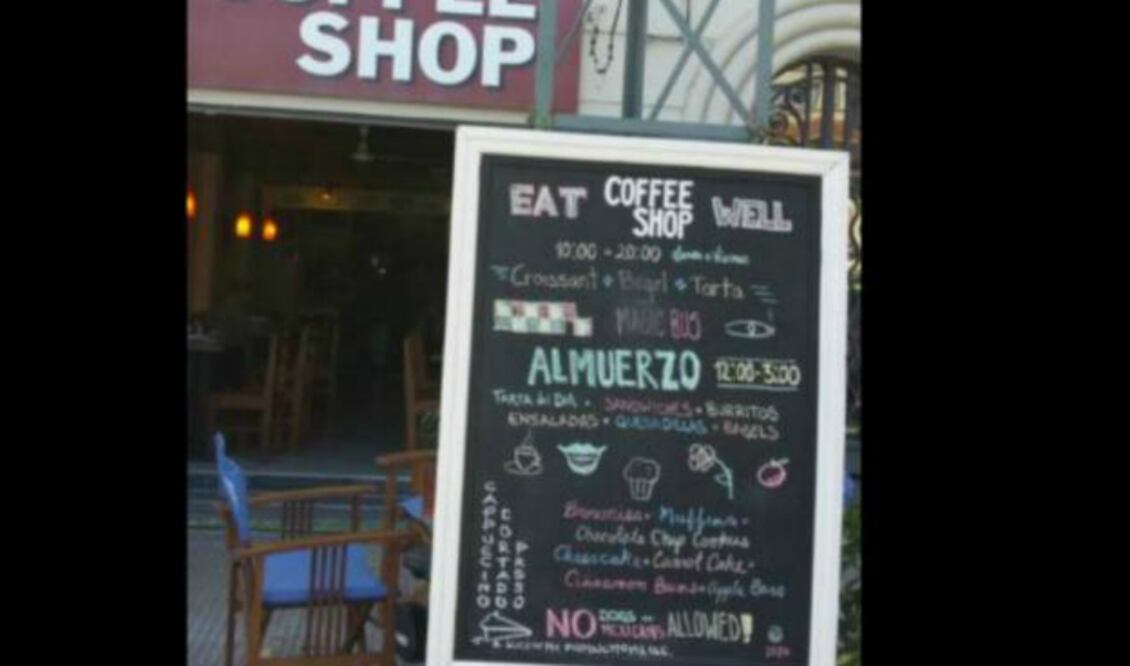 COFFEE
SHOP
EAT COFFEE SHOP WELL
10:00 - 20:00
Croissant Bagel Tarta
MAGIC BUS
ALMUERZO 12:00-3:00
TARTA del DIA SANDWICHES BURRITOS
ENSALADAS QUESADILLAS BAGELS
CAPPUCCINO
CORTADO
Muffins
Chocolate Chip Cookies
Cheesecake Carrot Cake
Cinnamon Buns Apple
NO DOGS or MEXICANS ALLOWED!